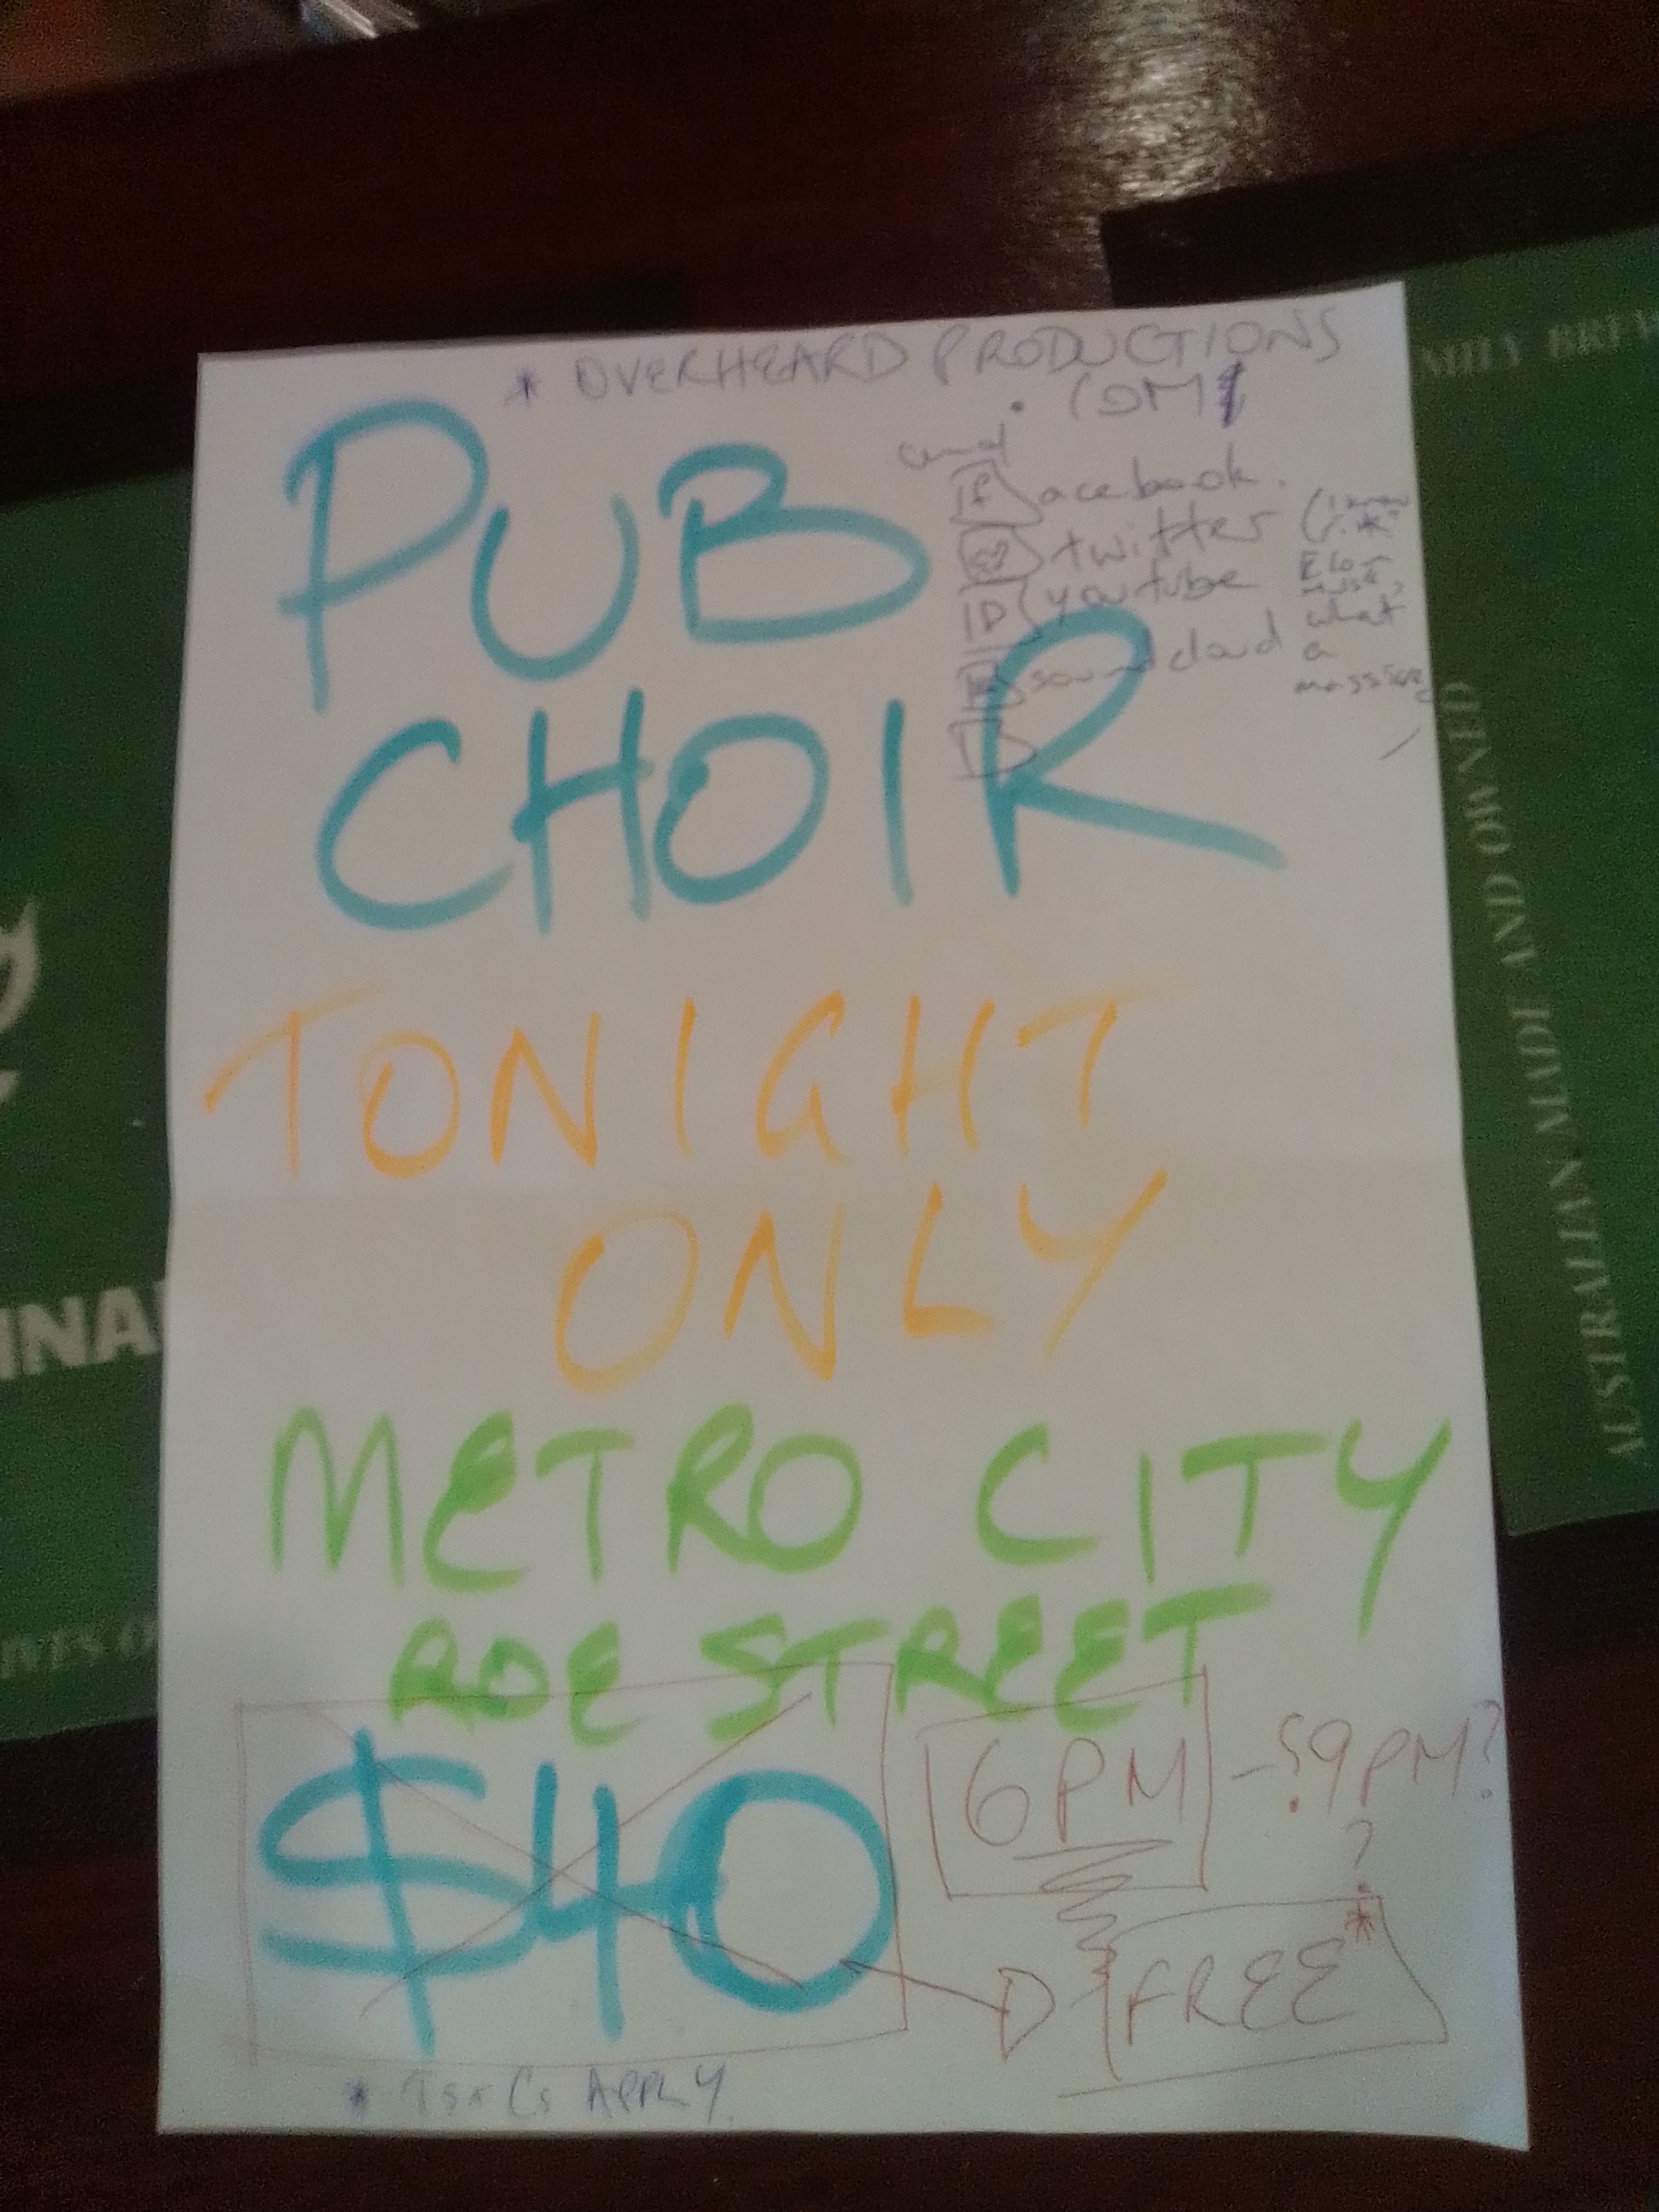 * OVERHEARD PRODUCTIONS
. COM
and
facebook.
twitter
youtube
soundcloud
what
a
PUB
CHOIR
TONIGHT
ONLY
METRO CITY
ROE STREET
$40
6PM - ?9PM?
?
FREE*
* Ts & Cs APPLY
BREW
AUSTRALIAN MADE AND OWNED